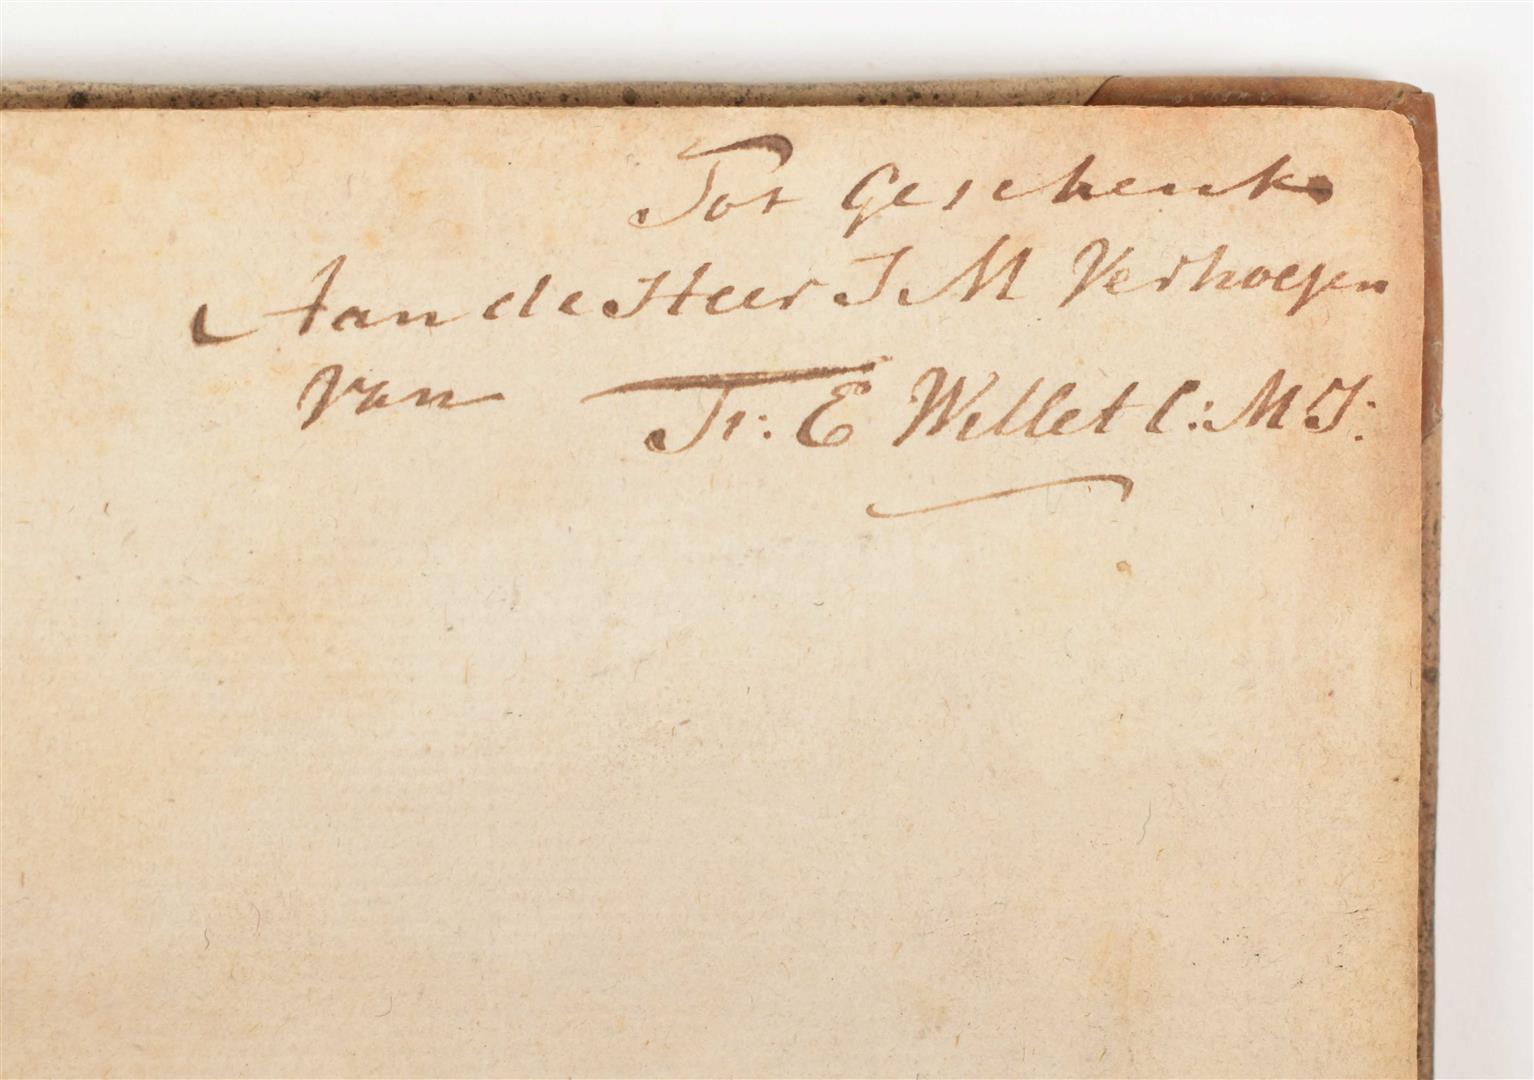 Tot Geschenk
Aan de Heer J. M Verhoeyen
van Fr: E Willet C: M J: